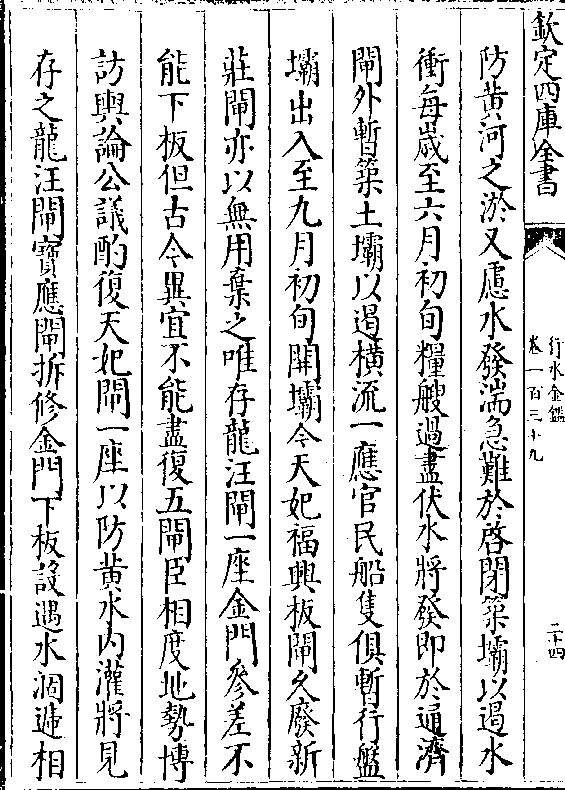 欽定四庫全書
行水金鑑
卷一百三十九
二十四
防黄河之淤又慮水發湍急難於啓閉築壩以遏水
衝每歲至六月初旬糧艘過盡伏水將發即於通濟
閘外暫築土壩以遏横流一應官民船隻俱暫行盤
壩出入至九月初旬開壩今天妃福興板閘久廢新
莊閘亦以無用棄之唯存龍汪閘一座金門參差不
能下板但古今異宜不能盡復五閘臣相度地勢博
訪輿論公議酌復天妃閘一座以防黄水内灌將見
存之龍汪閘寶應閘拆修金門下板設遇水涸遞相